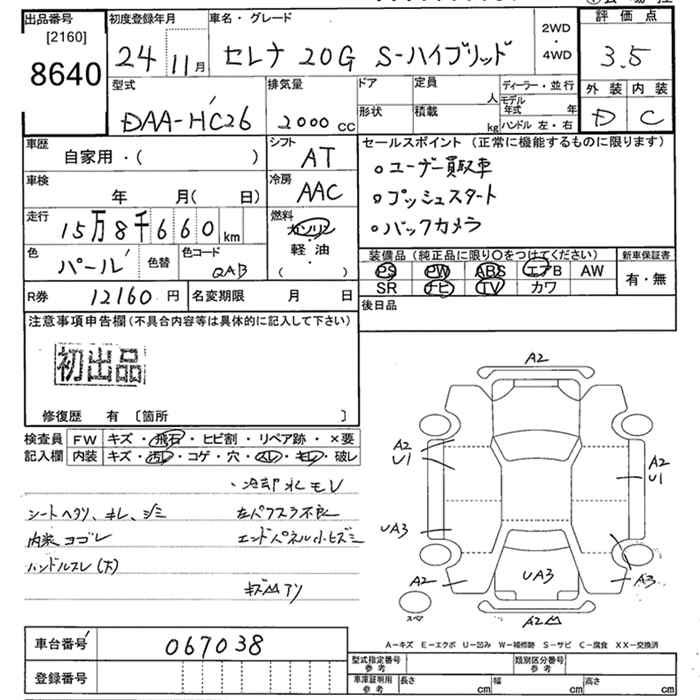 出品番号 初度登録年月 車名・グレード 2WD 評価点
[2160]
8640
24 11月 セレナ 20G S-ハイブリッド ・ 4WD 3.5
型式 排気量 ドア 定員 人 ディーラー・並行 外装 内装
形状 積載 kg モデル年式 年
ハンドル 左・右
DAA-HC26 2000 CC D C
車歴 自家用・( ) シフト AT
セールスポイント (正常に機能するものに限ります)
車検 年 月( 日) 冷房 AAC
○ユーザー買取車
○プッシュスタート
○バックカメラ
走行 15万8千660 km 燃料 ガソリン・軽油 ( )
色 パール 色替 色コード QAB
装備品 (純正品に限り○をつけてください) 新車保証書
PS PW ABS エアB AW 有・無
SR ナビ TV カワ
R券 12160 円 名変期限 月 日
後日品
注意事項申告欄(不具合内容等は具体的に記入して下さい)
初出品
修復歴 有 〔箇所 〕
検査員 FW キズ・飛石・ヒビ割・リペア跡・×要
記入欄 内装 キズ・汚レ・コゲ・穴・スレ・キレ・破レ
・冷却水モレ
シートヘタリ、キレ、シミ
内装ヨゴレ エンドパネル小ヒズミ
ハンドルスレ(大)
キズ凹アリ
A2
A2
U1
A2
U1
UA3
A2
UA3
A3
スペア
A2凹
A-キズ E-エクボ U-凹み W-補修跡 S-サビ C-腐食 XX-交換済
車台番号 067038
型式指定番号 参考 類別区分番号 参考
登録番号
車庫証明用 参考 長さ cm 幅 cm 高さ cm